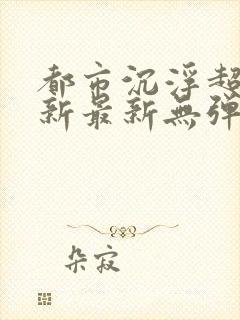 都市沉浮超
新最新無弹
朵寂